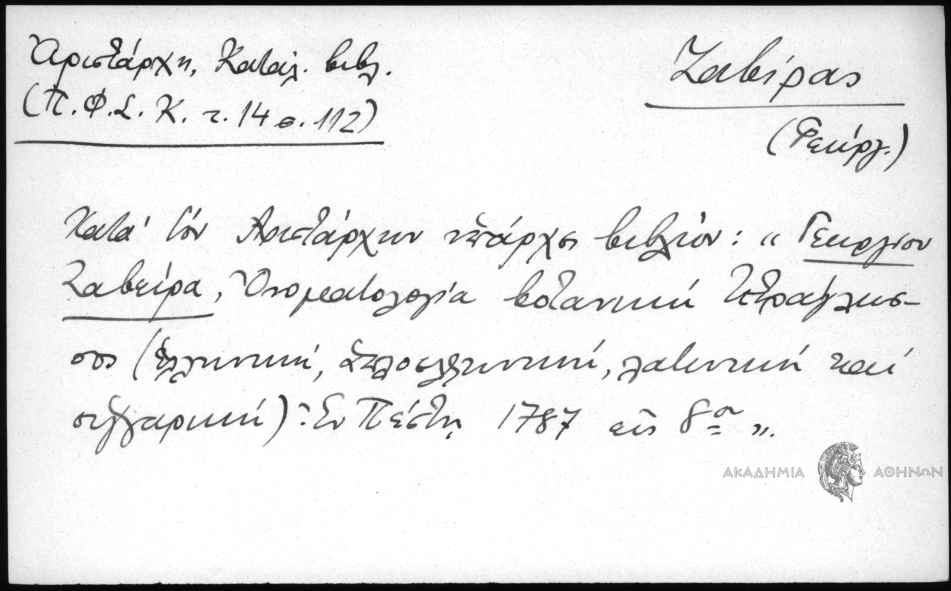 Ἀριστάρχη, Κατάλ. βιβλ.
(Π. Φ. Σ. Κ. τ. 14 σ. 112)
Ζαβίρας
(Γεώργ.)
Κατά τόν Ἀριστάρχην ὑπάρχει βιβλίον: „ Γεωργίου
Ζαβείρα, Ὀνοματολογία βοτανική τετράγλωσ-
σος (ἑλληνική, ἁπλοελληνική, λατινική καί
οὑγγαρική). Ἐν Πέστῃ 1787 εἰς 8ον „.
ΑΚΑΔΗΜΙΑ ΑΘΗΝΩΝ